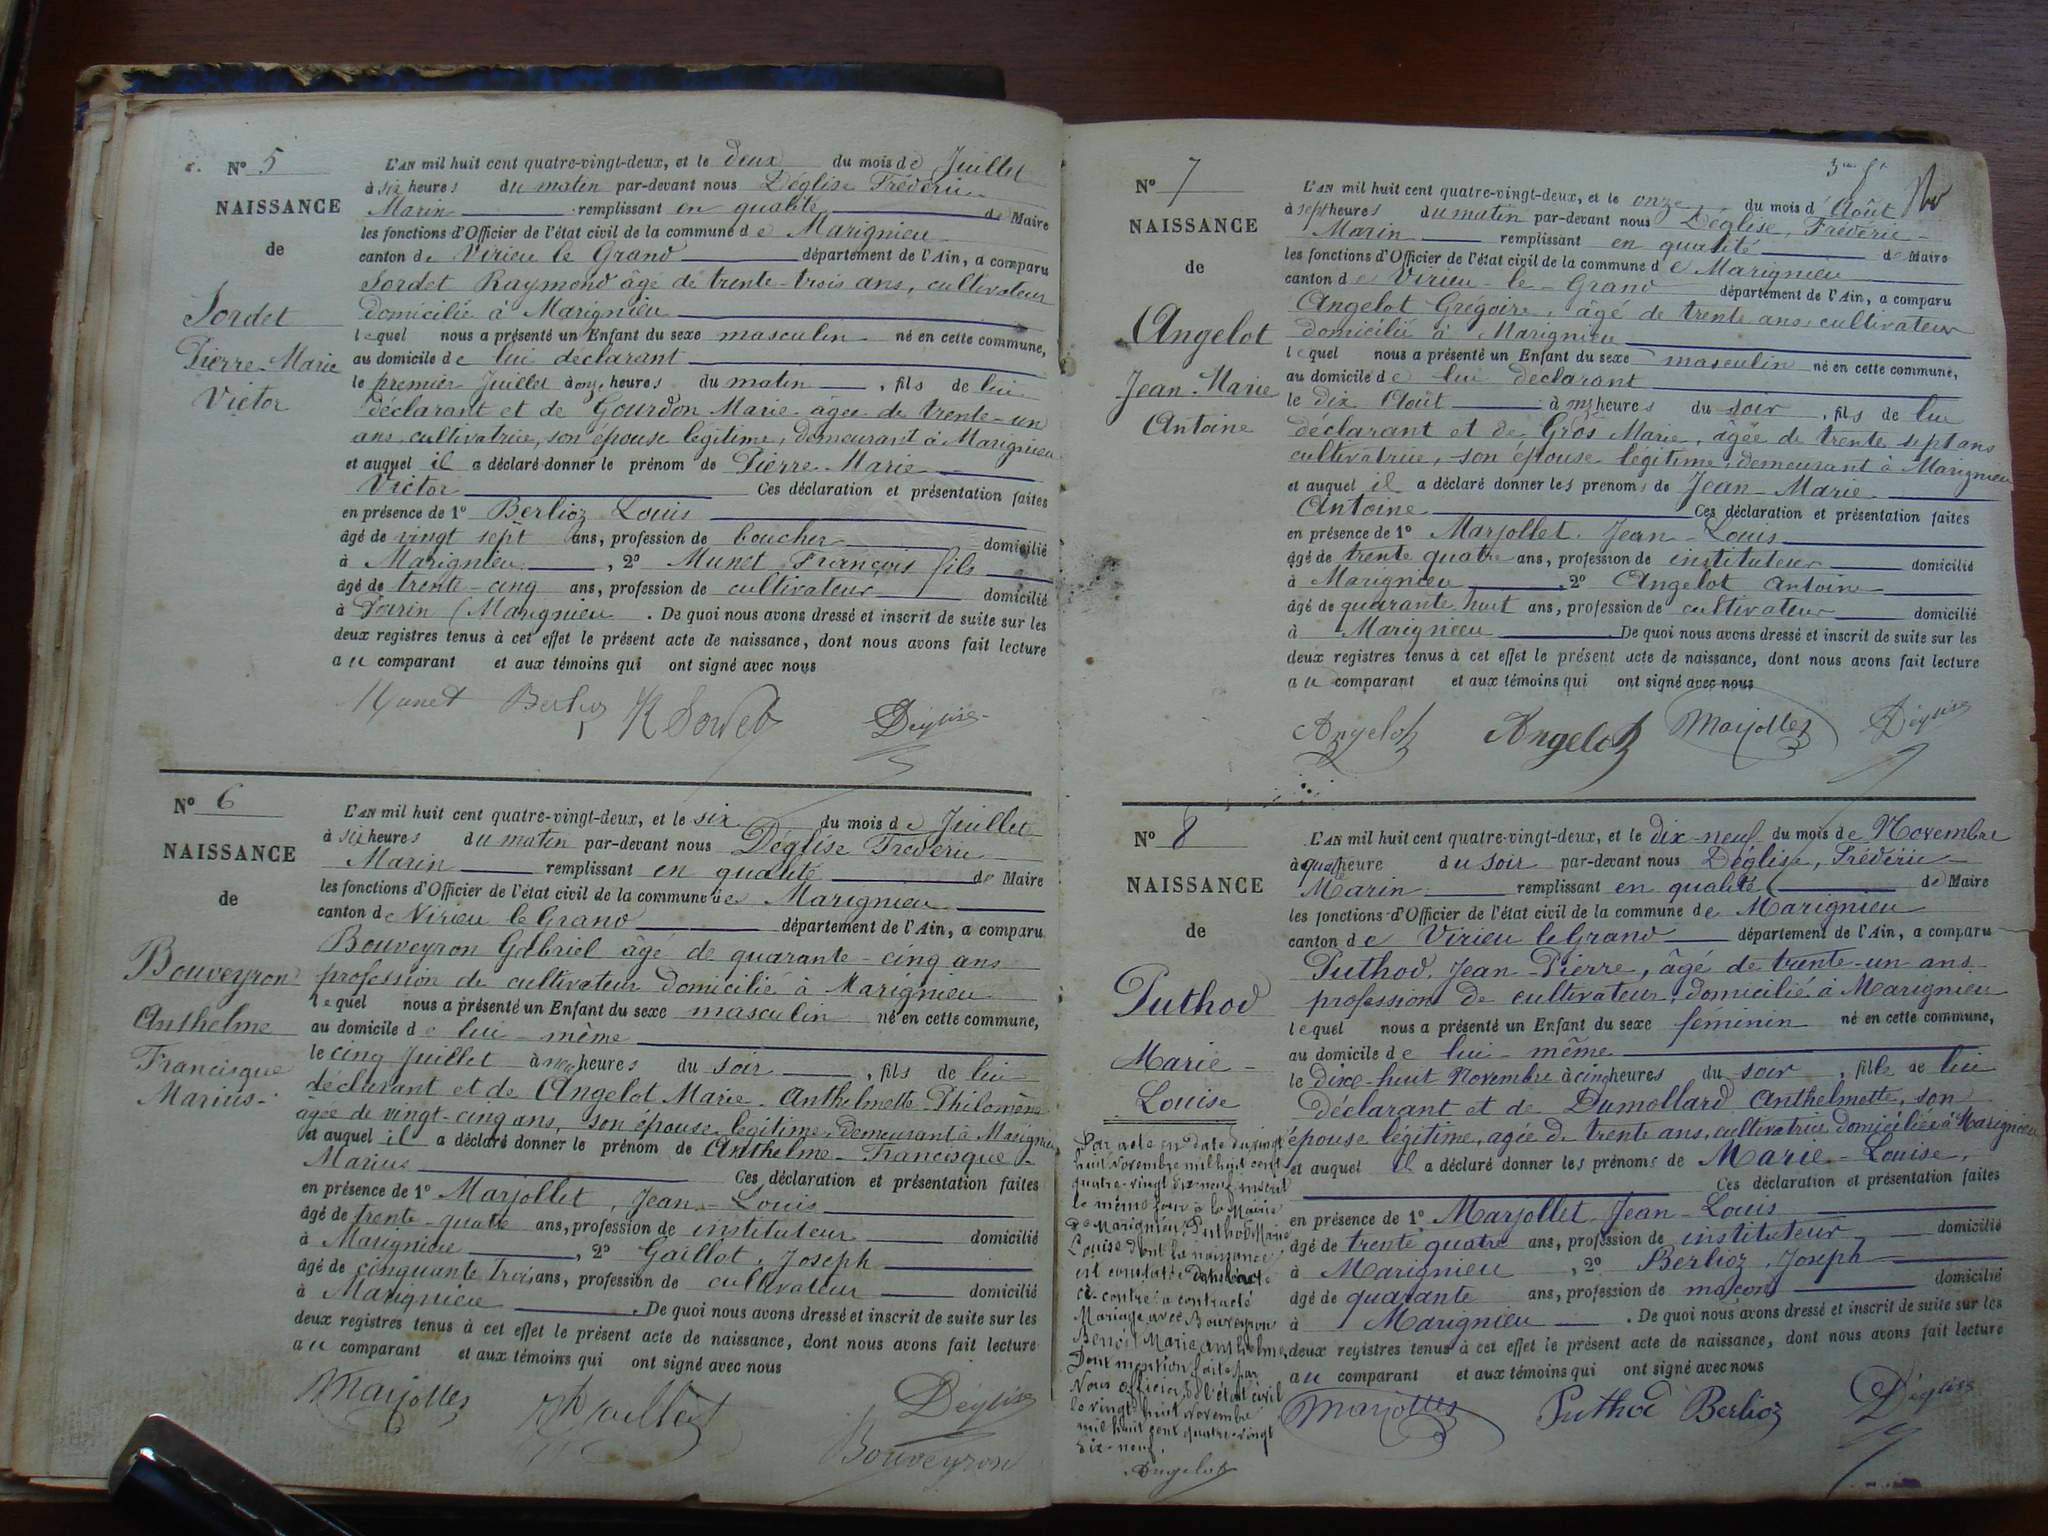 N° 5
NAISSANCE
de
Sordet
Pierre-Marie
Victor
L'AN mil huit cent quatre-vingt-deux, et le deux du mois de Juillet
à six heures du matin par-devant nous Déglise Frédéric
Marin remplissant en qualité de Maire
les fonctions d'Officier de l'état civil de la commune de Marignieu
canton de Virieu le Grand département de l'Ain, a comparu
Sordet Raymond âgé de trente-trois ans, cultivateur
domicilié à Marignieu
lequel nous a présenté un Enfant du sexe masculin né en cette commune,
au domicile de lui déclarant
le premier Juillet à onze heures du matin, fils de lui
déclarant et de Gourdon Marie âgée de trente-un
ans cultivatrice, son épouse légitime, demeurant à Marignieu
et auquel il a déclaré donner le prénom de Pierre Marie
Victor Ces déclaration et présentation faites
en présence de 1° Berlioz Louis
âgé de vingt sept ans, profession de boucher domicilié
à Marignieu, 2° Munet François fils
âgé de trente-cinq ans, profession de cultivateur domicilié
à (Marignieu. De quoi nous avons dressé et inscrit de suite sur les
deux registres tenus à cet effet le présent acte de naissance, dont nous avons fait lecture
au comparant et aux témoins qui ont signé avec nous
Munet Berlioz R Sordet Déglise
N° 6
NAISSANCE
de
Bouveyron
Anthelme
Francisque
Marius
L'AN mil huit cent quatre-vingt-deux, et le six du mois de Juillet
à six heures du matin par-devant nous Déglise Frédéric
Marin remplissant en qualité de Maire
les fonctions d'Officier de l'état civil de la commune de Marignieu
canton de Virieu le Grand département de l'Ain, a comparu
Bouveyron Gabriel âgé de quarante-cinq ans
profession de cultivateur domicilié à Marignieu
lequel nous a présenté un Enfant du sexe masculin né en cette commune,
au domicile de lui-même
le cinq Juillet à heures du soir, fils de lui
déclarant et de Angelot Marie Anthelmette Philomène
âgée de vingt-cinq ans, son épouse légitime, demeurant à Marignieu
et auquel il a déclaré donner le prénom de Anthelme-Francisque-
Marius Ces déclaration et présentation faites
en présence de 1° Marjollet, Jean-Louis
âgé de trente-quatre ans, profession de instituteur domicilié
à Marignieu, 2° Gaillot, Joseph
âgé de cinquante trois ans, profession de cultivateur domicilié
à Marignieu. De quoi nous avons dressé et inscrit de suite sur les
deux registres tenus à cet effet le présent acte de naissance, dont nous avons fait lecture
au comparant et aux témoins qui ont signé avec nous
Marjollet Déglise
Bouveyron
N° 7
NAISSANCE
de
Angelot
Jean-Marie
Antoine
L'AN mil huit cent quatre-vingt-deux, et le onze du mois d'Août
à sept heures du matin par-devant nous Déglise, Frédéric
Marin remplissant en qualité de Maire
les fonctions d'Officier de l'état civil de la commune de Marignieu
canton de Virieu-le-Grand département de l'Ain, a comparu
Angelot Grégoire, âgé de trente ans cultivateur
domicilié à Marignieu
lequel nous a présenté un Enfant du sexe masculin né en cette commune,
au domicile de lui déclarant
le dix Août à onze heures du soir, fils de lui
déclarant et de Gros Marie, âgée de trente sept ans
cultivatrice, son épouse légitime, demeurant à Marignieu
et auquel il a déclaré donner les prénoms de Jean-Marie
Antoine Ces déclaration et présentation faites
en présence de 1° Marjollet Jean-Louis
âgé de trente quatre ans, profession de instituteur domicilié
à Marignieu, 2° Angelot Antoine
âgé de quarante huit ans, profession de cultivateur domicilié
à Marignieu. De quoi nous avons dressé et inscrit de suite sur les
deux registres tenus à cet effet le présent acte de naissance, dont nous avons fait lecture
au comparant et aux témoins qui ont signé avec nous
Angelot Angelot Marjollet Déglise
N° 8
NAISSANCE
de
Puthod
Marie-
Louise
Par acte en date du vingt
huit Novembre mil huit cent
quatre-vingt dix-neuf inscrit
le même jour à la Mairie
de Marignieu, Puthod Marie
Louise dont la naissance
est constatée dans l'acte
ci-contre a contracté
Mariage avec Bouveyron
Benoit Marie Anthelme
Dont mention faite par
Nous officier de l'état civil
le vingt huit Novembre
mil huit cent quatre-vingt
dix-neuf.
Angelot
L'AN mil huit cent quatre-vingt-deux, et le dix-neuf du mois de Novembre
à quatre heure du soir par-devant nous Déglise, Frédéric
Marin remplissant en qualité de Maire
les fonctions d'Officier de l'état civil de la commune de Marignieu
canton de Virieu le Grand département de l'Ain, a comparu
Puthod, Jean-Pierre, âgé de trente-un ans
profession de cultivateur, domicilié à Marignieu
lequel nous a présenté un Enfant du sexe féminin né en cette commune,
au domicile de lui-même
le dixe-huit Novembre à cinq heures du soir, fille de lui
déclarant et de Dumollard Anthelmette, son
épouse légitime, agée de trente ans, cultivatrice domiciliée à Marignieu
et auquel il a déclaré donner les prénoms de Marie-Louise,
Ces déclaration et présentation faites
en présence de 1° Marjollet Jean-Louis
âgé de trente quatre ans, profession de instituteur domicilié
à Marignieu, 2° Berlioz, Joseph
âgé de quarante ans, profession de maçon domicilié
à Marignieu. De quoi nous avons dressé et inscrit de suite sur les
deux registres tenus à cet effet le présent acte de naissance, dont nous avons fait lecture
au comparant et aux témoins qui ont signé avec nous
Marjollet Puthod Berlioz Déglise